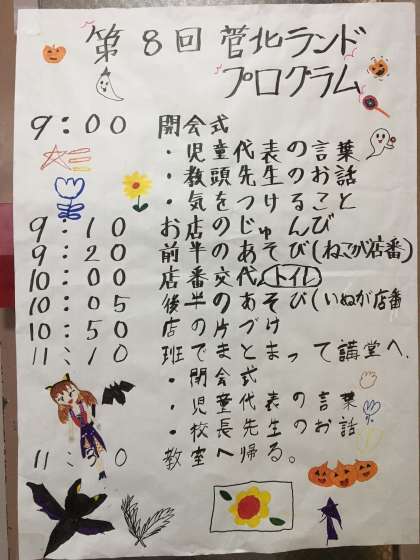 第8回 菅北ランド
プログラム
9:00 開会式
・児童代表の言葉
・教頭先生のお話
・気をつけること
9:10 お店のじゅんび
9:20 前半のあそび(ねこが店番)
10:00 店番交代 トイレ
10:05 後半のあそび(いぬが店番
10:50 店の片づけ
11:10 班でまとまって講堂へ、
・閉会式
・児童代表の言葉
・校長先生のお話
教室へ帰る。